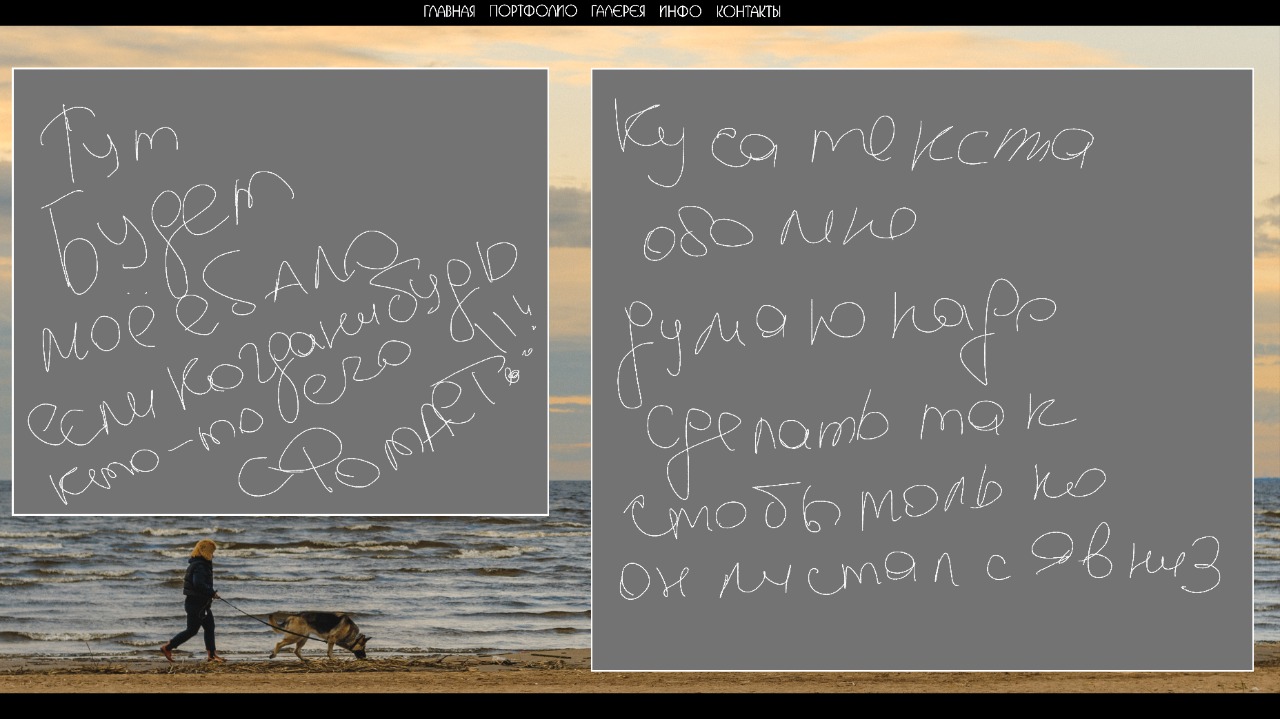 ГЛАВНАЯ ПОРТФОЛИО ГАЛЕРЕЯ ИНФО КОНТАКТЫ
Тут
Будет
моё ебало
если когданибудь
кто-то его
сфотает!!!
Куса текста
обо мне
думаю надо
сделать так
стобы только
он листался вниз